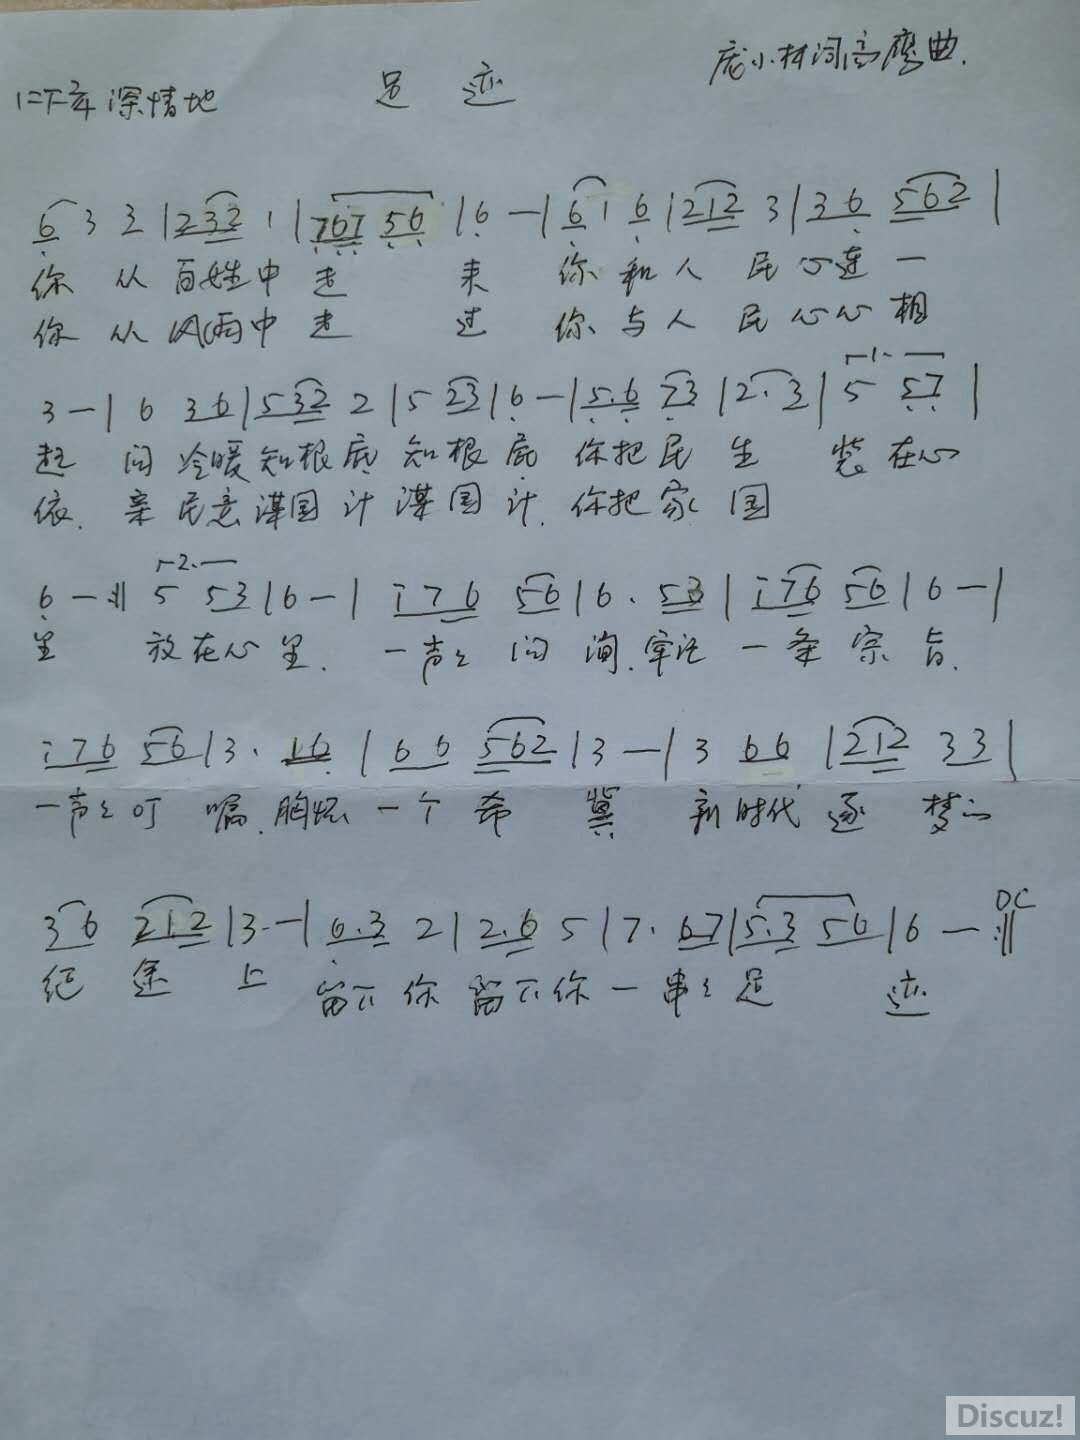 足迹
庞小林词高鹰曲.
深情地
6 3 3 | 2 3 2 1 | 7 6 7 5 6 | 6 — | 6 1 6 | 2 1 2 3 | 3 6 5 6 2 |
你 从 百姓中 走 来 你 和 人 民 心 连 一
你 从 风雨中 走 过 你 与 人 民 心 心 相
3 — | 6 3 6 | 5 3 2 2 | 5 2 3 | 6 — | 5 . 6 2 3 | 2 . 3 | 1. 5 5 7 |
起 问 冷暖 知根底 知根底 你把民 生 装 在心
依. 亲 民意 谋国计 谋国计. 你把家 国
6 — :|| 2. 5 5 3 | 6 — | i 7 6 5 6 | 6 . 5 3 | i 7 6 5 6 | 6 — |
里 放在心里. 一声々 问 询. 牢记 一 条 宗 旨.
i 7 6 5 6 | 3 . 1 6 | 6 6 5 6 2 | 3 — | 3 6 6 | 2 1 2 3 3 |
一声々叮 嘱. 胸怀 一个 希 冀 新时代 逐 梦的
3 6 2 1 2 | 3 . — | 6 . 3 2 | 2 . 6 5 | 7 . 6 7 | 5 . 3 5 6 | 6 — :|| DC
征 途 上 留下 你 留下你 一 串々足 迹
Discuz!